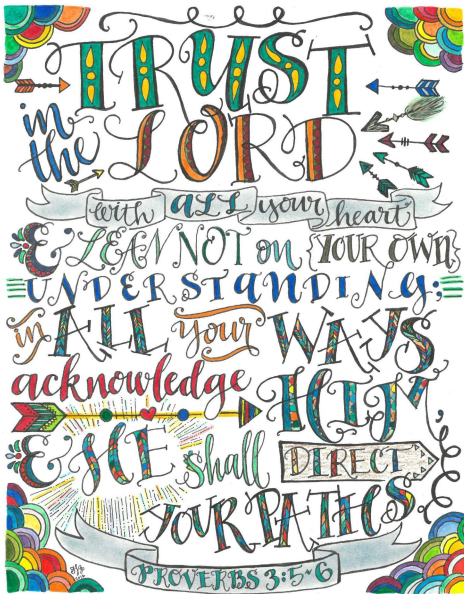 TRUST
in the LORD
with ALL your heart
& LEAN NOT on YOUR OWN
UNDERSTANDING;
in ALL your WAYS
acknowledge HIM
& HE shall DIRECT
YOUR PATHS.
PROVERBS 3:5~6